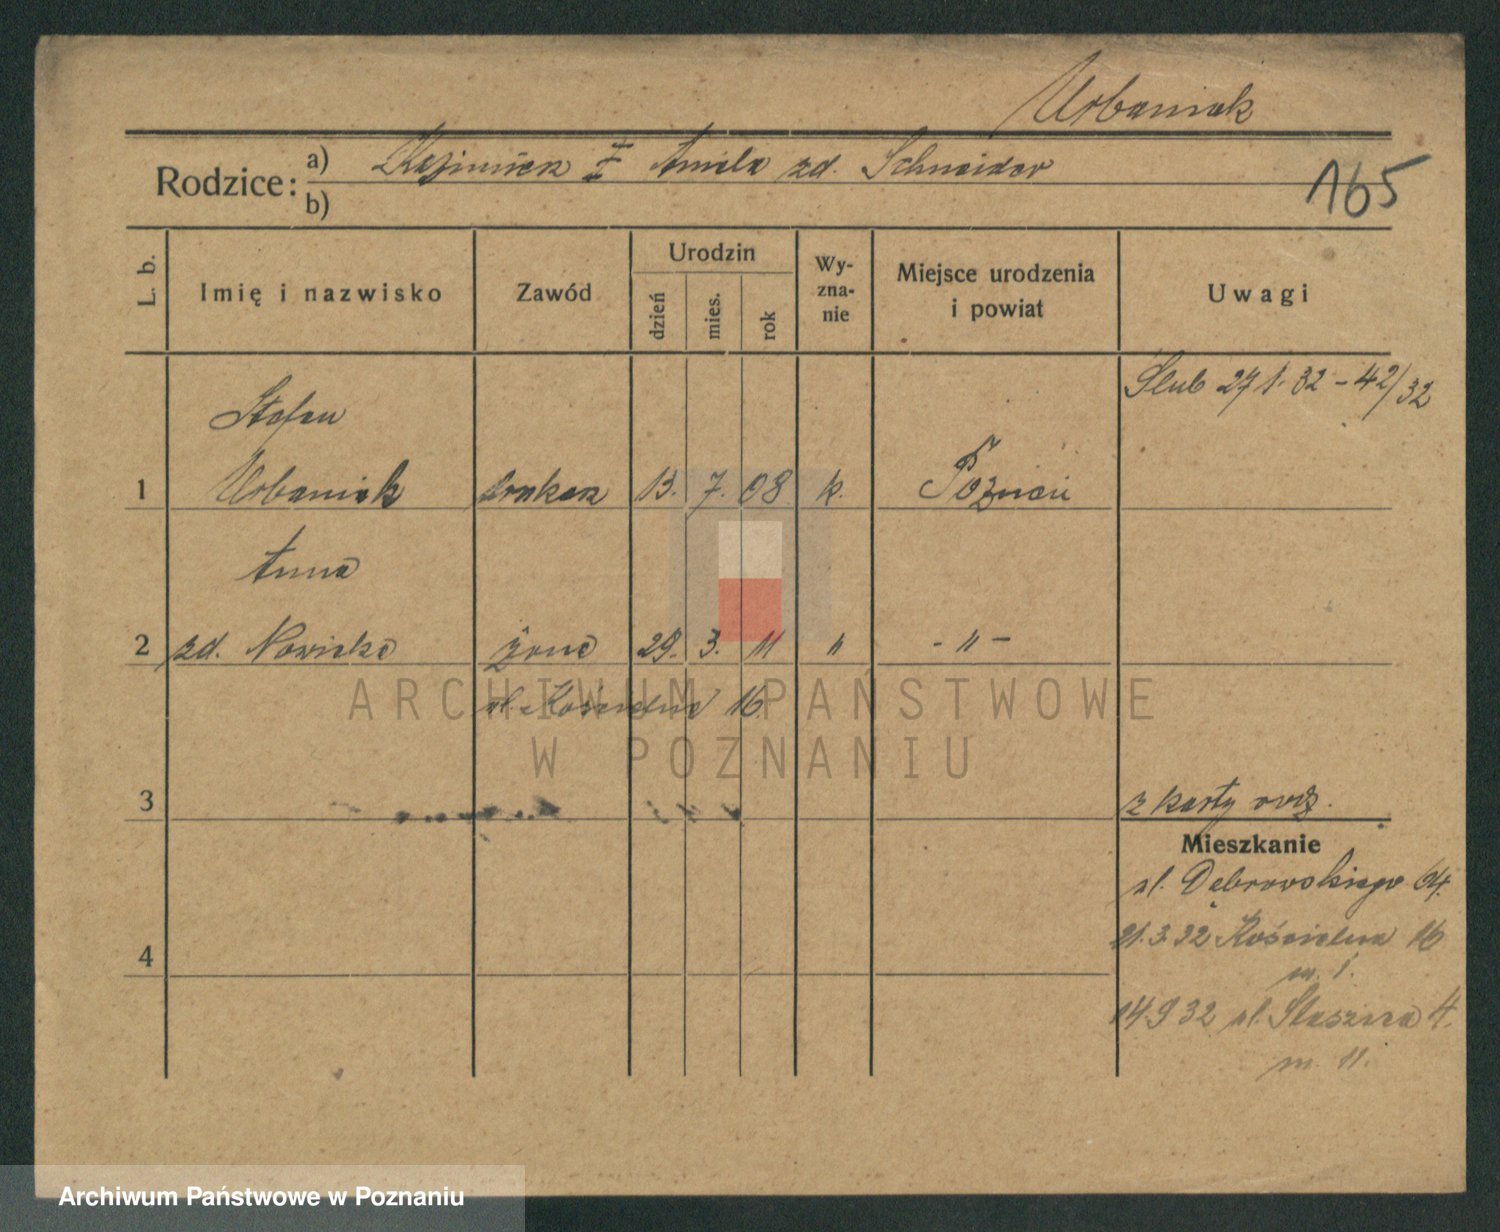 Urbaniak
Rodzice: a) Kazimierz I Amela zd. Schneider
b)
165
L. b.
Imię i nazwisko
Zawód
Urodzin
dzień
mies.
rok
Wy-
zna-
nie
Miejsce urodzenia
i powiat
Uwagi
Ślub 27 1. 32 - 42/32
Stefan
1 Urbaniak drukarz 13. 7. 08 k. Poznań
Anna
2 zd. Nowicka żona 29. 3. 11 " - " -
ul. Kościelna 16
ARCHIWUM PAŃSTWOWE
W POZNANIU
3
z karty rodz.
Mieszkanie
ul. Dąbrowskiego 64.
21.3.32 Kościelna 16
m. 1.
4
14.9 32 ul. Staszica 4.
m. 11.
Archiwum Państwowe w Poznaniu